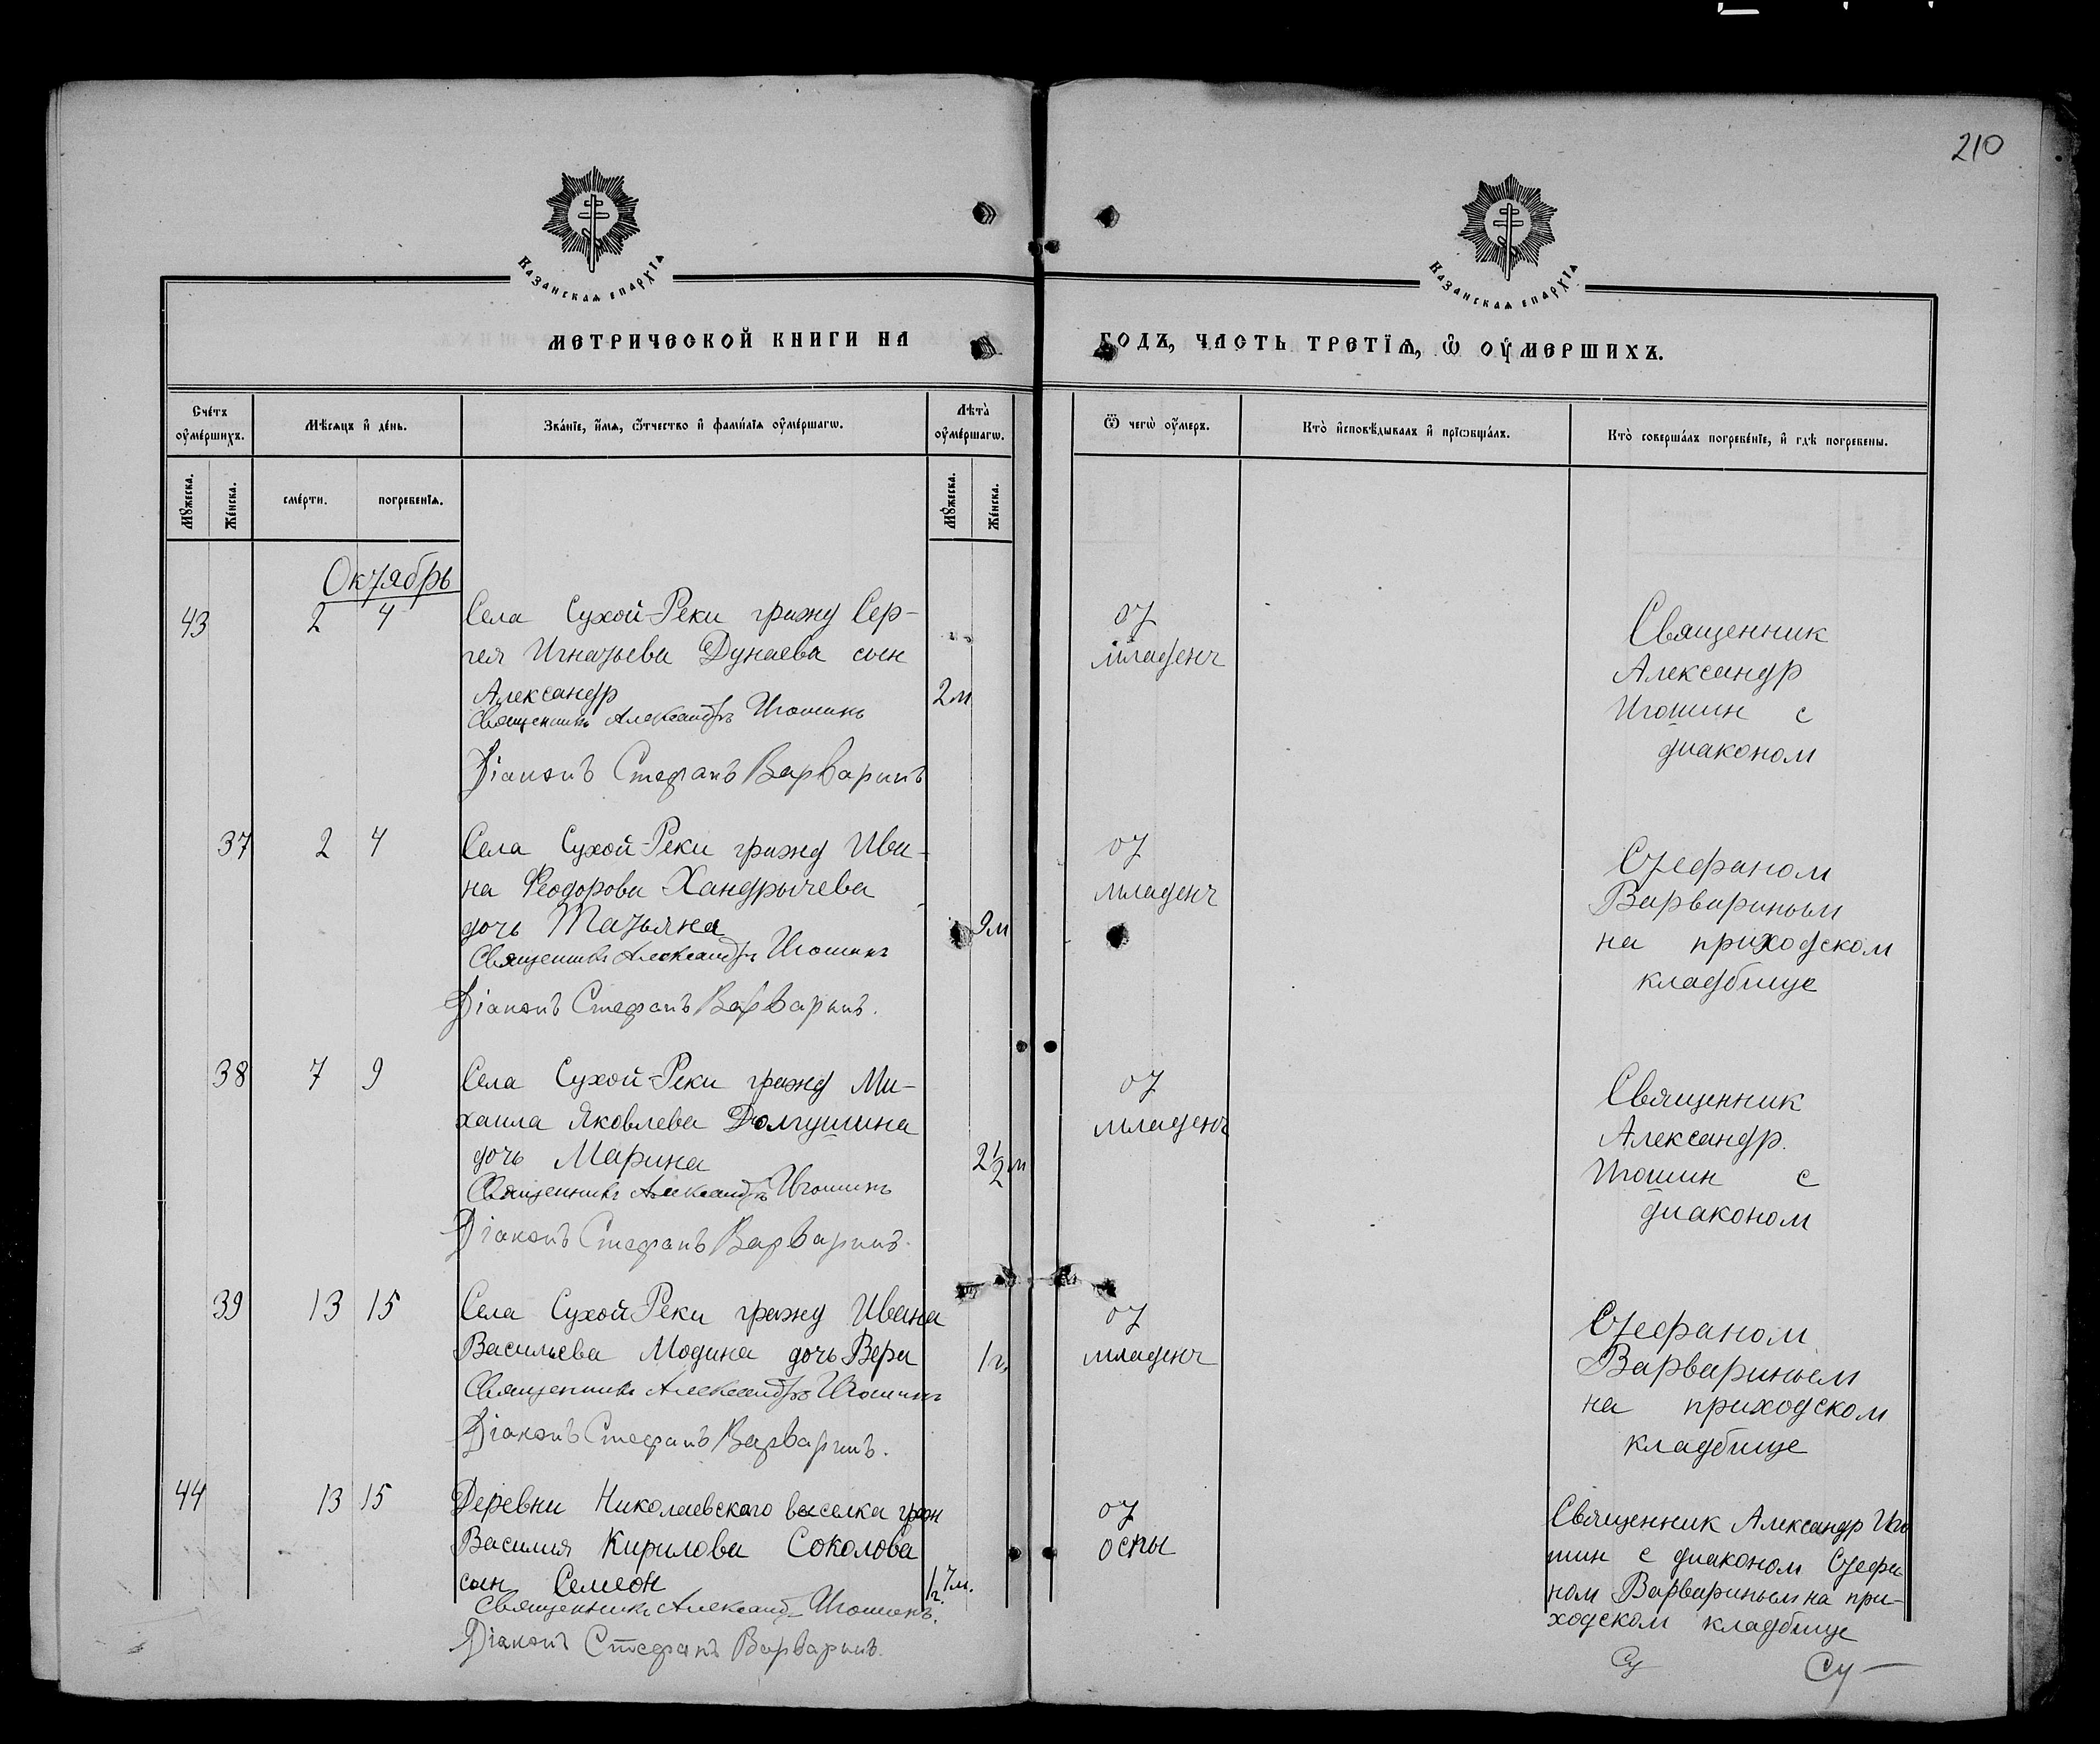 210
Казанскаѧ епархїа
Казанскаѧ епархїа
МЕТРИЧЕСКОЙ КНИГИ НА
ГОДЪ, ЧАСТЬ ТРЕТЇѦ, Ѿ ОУМЕРШИХЪ.
Сче́тъ оу҆ме́ршихъ.
Мѣ́сѧцъ и҆ де́нь.
Зва́нїе, и҆́мѧ, ѻ҆́тчество и҆ фамилїѧ оу҆ме́ршагѡ.
Лѣта̀ оу҆ме́ршагѡ.
Ѿ чегѡ̀ оу҆́меръ.
Кто̀ и҆сповѣ́дывалъ и҆ прїѡбща́лъ.
Кто̀ соверша́лъ погребе́нїе, и҆ гдѣ̀ погребены.
Мꙋ́жеска.
Же́нска.
сме́рти.
погребенїѧ.
Мꙋ́жеска.
Же́нска.
Октябрь
43 2 4
Села Сухой-Реки гражд Сер-
гея Игнатьева Дунаева сын
Александр 2м
Священникъ Александръ Игошинъ
Діаконъ Стефанъ Варваринъ
от
младенч
Священник
Александр
Игошин с
диаконом
37 2 4
Села Сухой-Реки гражд Ива-
на Феодорова Хандрычева
дочь Татьяна 9м
Священникъ Александръ Игошинъ
Діаконъ Стефанъ Варваринъ.
от
младенч
Стефаном
Варвариным
на приходском
кладбище
38 7 9
Села Сухой-Реки гражд Ми-
хаила Яковлева Долгушина
дочь Марина 2½м
Священникъ Александръ Игошинъ
Діаконъ Стефанъ Варваринъ.
от
младенч
Священник
Александр.
Игошин с
диаконом
39 13 15
Села Сухой Реки гражд Ивана
Васильева Модина дочь Вера 1г.
Священникъ Александръ Игошинъ
Діаконъ Стефанъ Варваринъ.
от
младенч
Стефаном
Варвариным
на приходском
кладбище
44 13 15
Деревни Николаевского выселка гражн
Василия Кирилова Соколова
сын Семеон 1г. 7м.
Священникъ Александръ Игошинъ.
Діаконъ Стефанъ Варваринъ.
от
оспы
Священник Александр Иго
шин с диаконом Стефа
ном Варвариным на при-
ходском кладбище
Су
Су